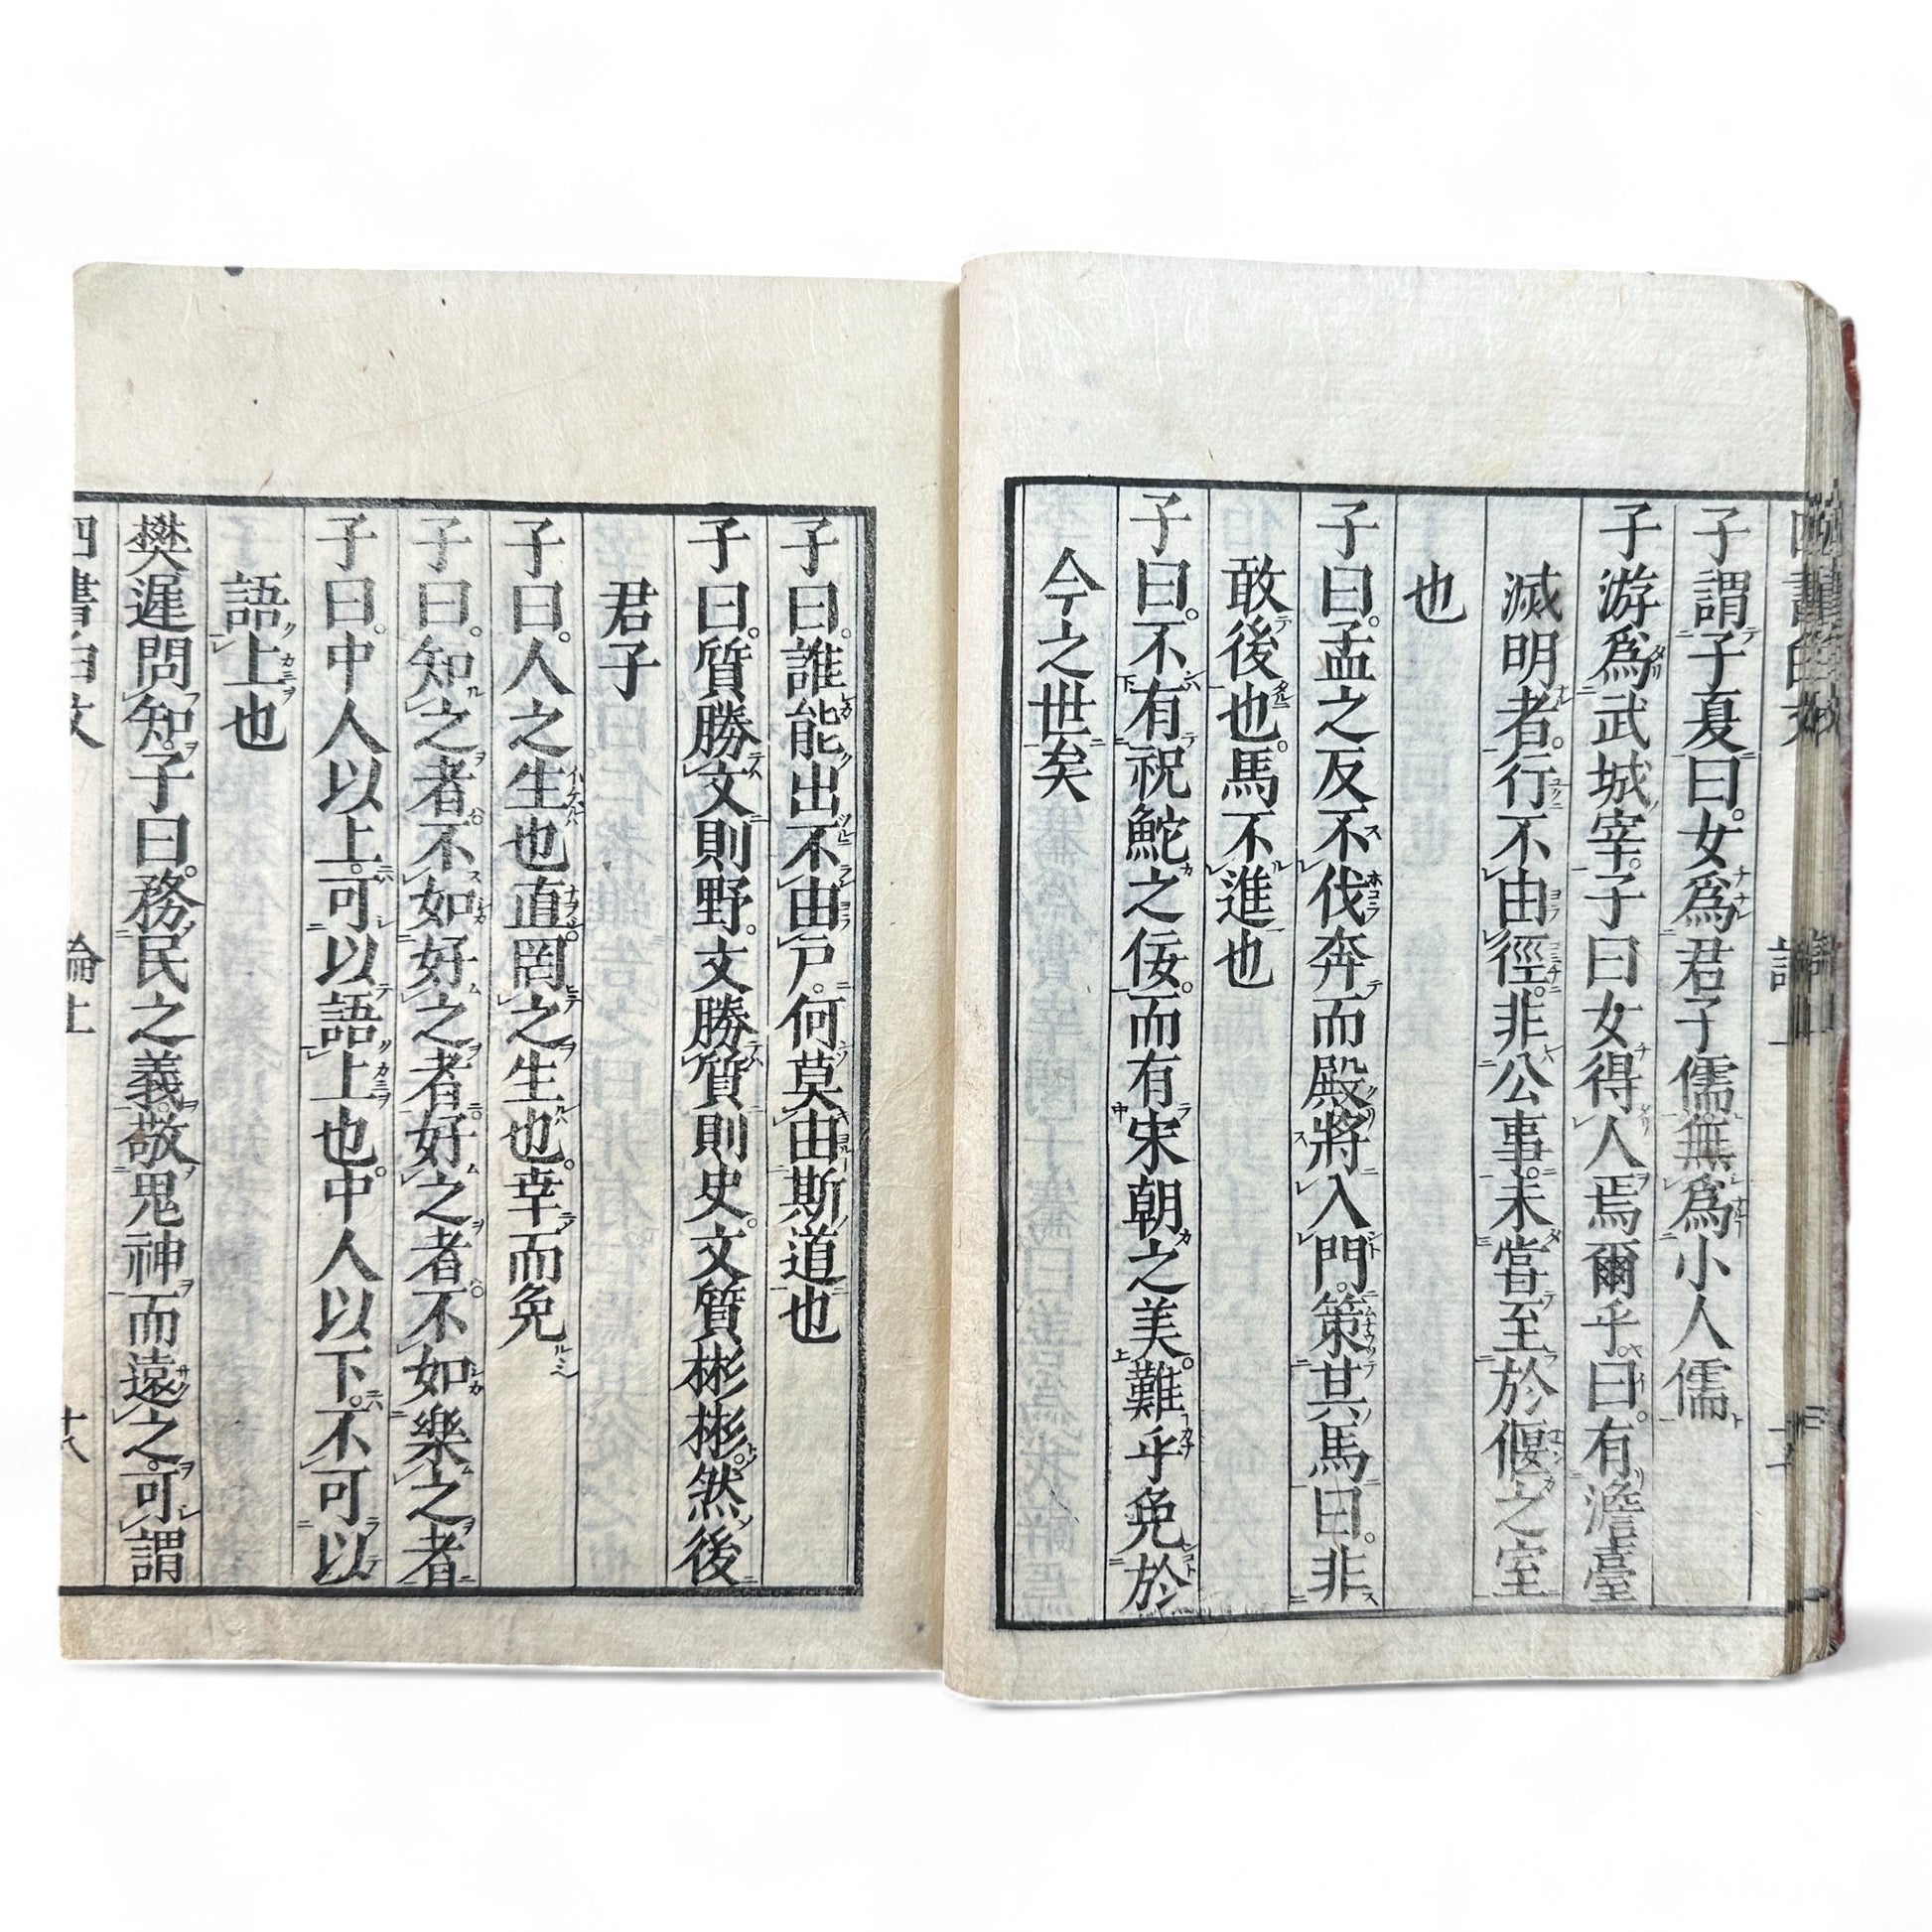 子謂子夏曰。女爲君子儒無爲小人儒
子游爲武城宰。子曰女得人焉爾乎。曰。有澹臺
滅明者。行不由徑。非公事。未嘗至於偃之室
也
子曰。孟之反不伐奔而殿將入門。策其馬曰。非
敢後也。馬不進也
子曰。不有祝鮀之佞。而有宋朝之美。難乎免於
今之世矣
子曰。誰能出不由戸。何莫由斯道也
子曰。質勝文則野。文勝質則史。文質彬彬。然後
君子
子曰。人之生也直。罔之生也。幸而免
子曰。知之者。不如好之者。好之者。不如樂之者
子曰。中人以上。可以語上也。中人以下。不可以
語上也
樊遲問知。子曰。務民之義。敬鬼神而遠之。可謂
論上
十八